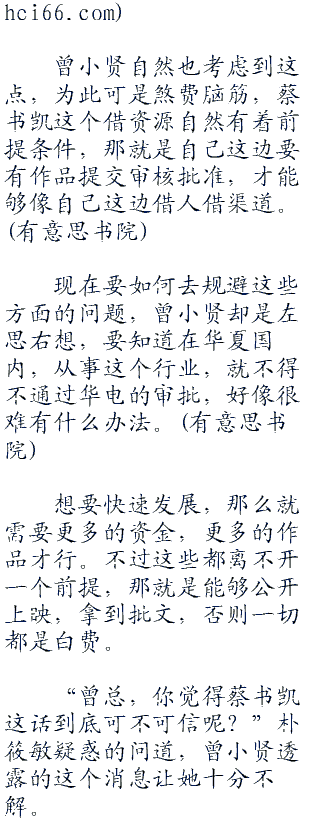 hci66.com)
曾小贤自然也考虑到这
点，为此可是煞费脑筋，蔡
书凯这个借资源自然有着前
提条件，那就是自己这边要
有作品提交审核批准，才能
够像自己这边借人借渠道。
(有意思书院)
现在要如何去规避这些
方面的问题，曾小贤却是左
思右想，要知道在华夏国
内，从事这个行业，就不得
不通过华电的审批，好像很
难有什么办法。(有意思书
院)
想要快速发展，那么就
需要更多的资金，更多的作
品才行。不过这些都离不开
一个前提，那就是能够公开
上映，拿到批文，否则一切
都是白费。
“曾总，你觉得蔡书凯
这话到底可不可信呢？”朴
筱敏疑惑的问道，曾小贤透
露的这个消息让她十分不
解。